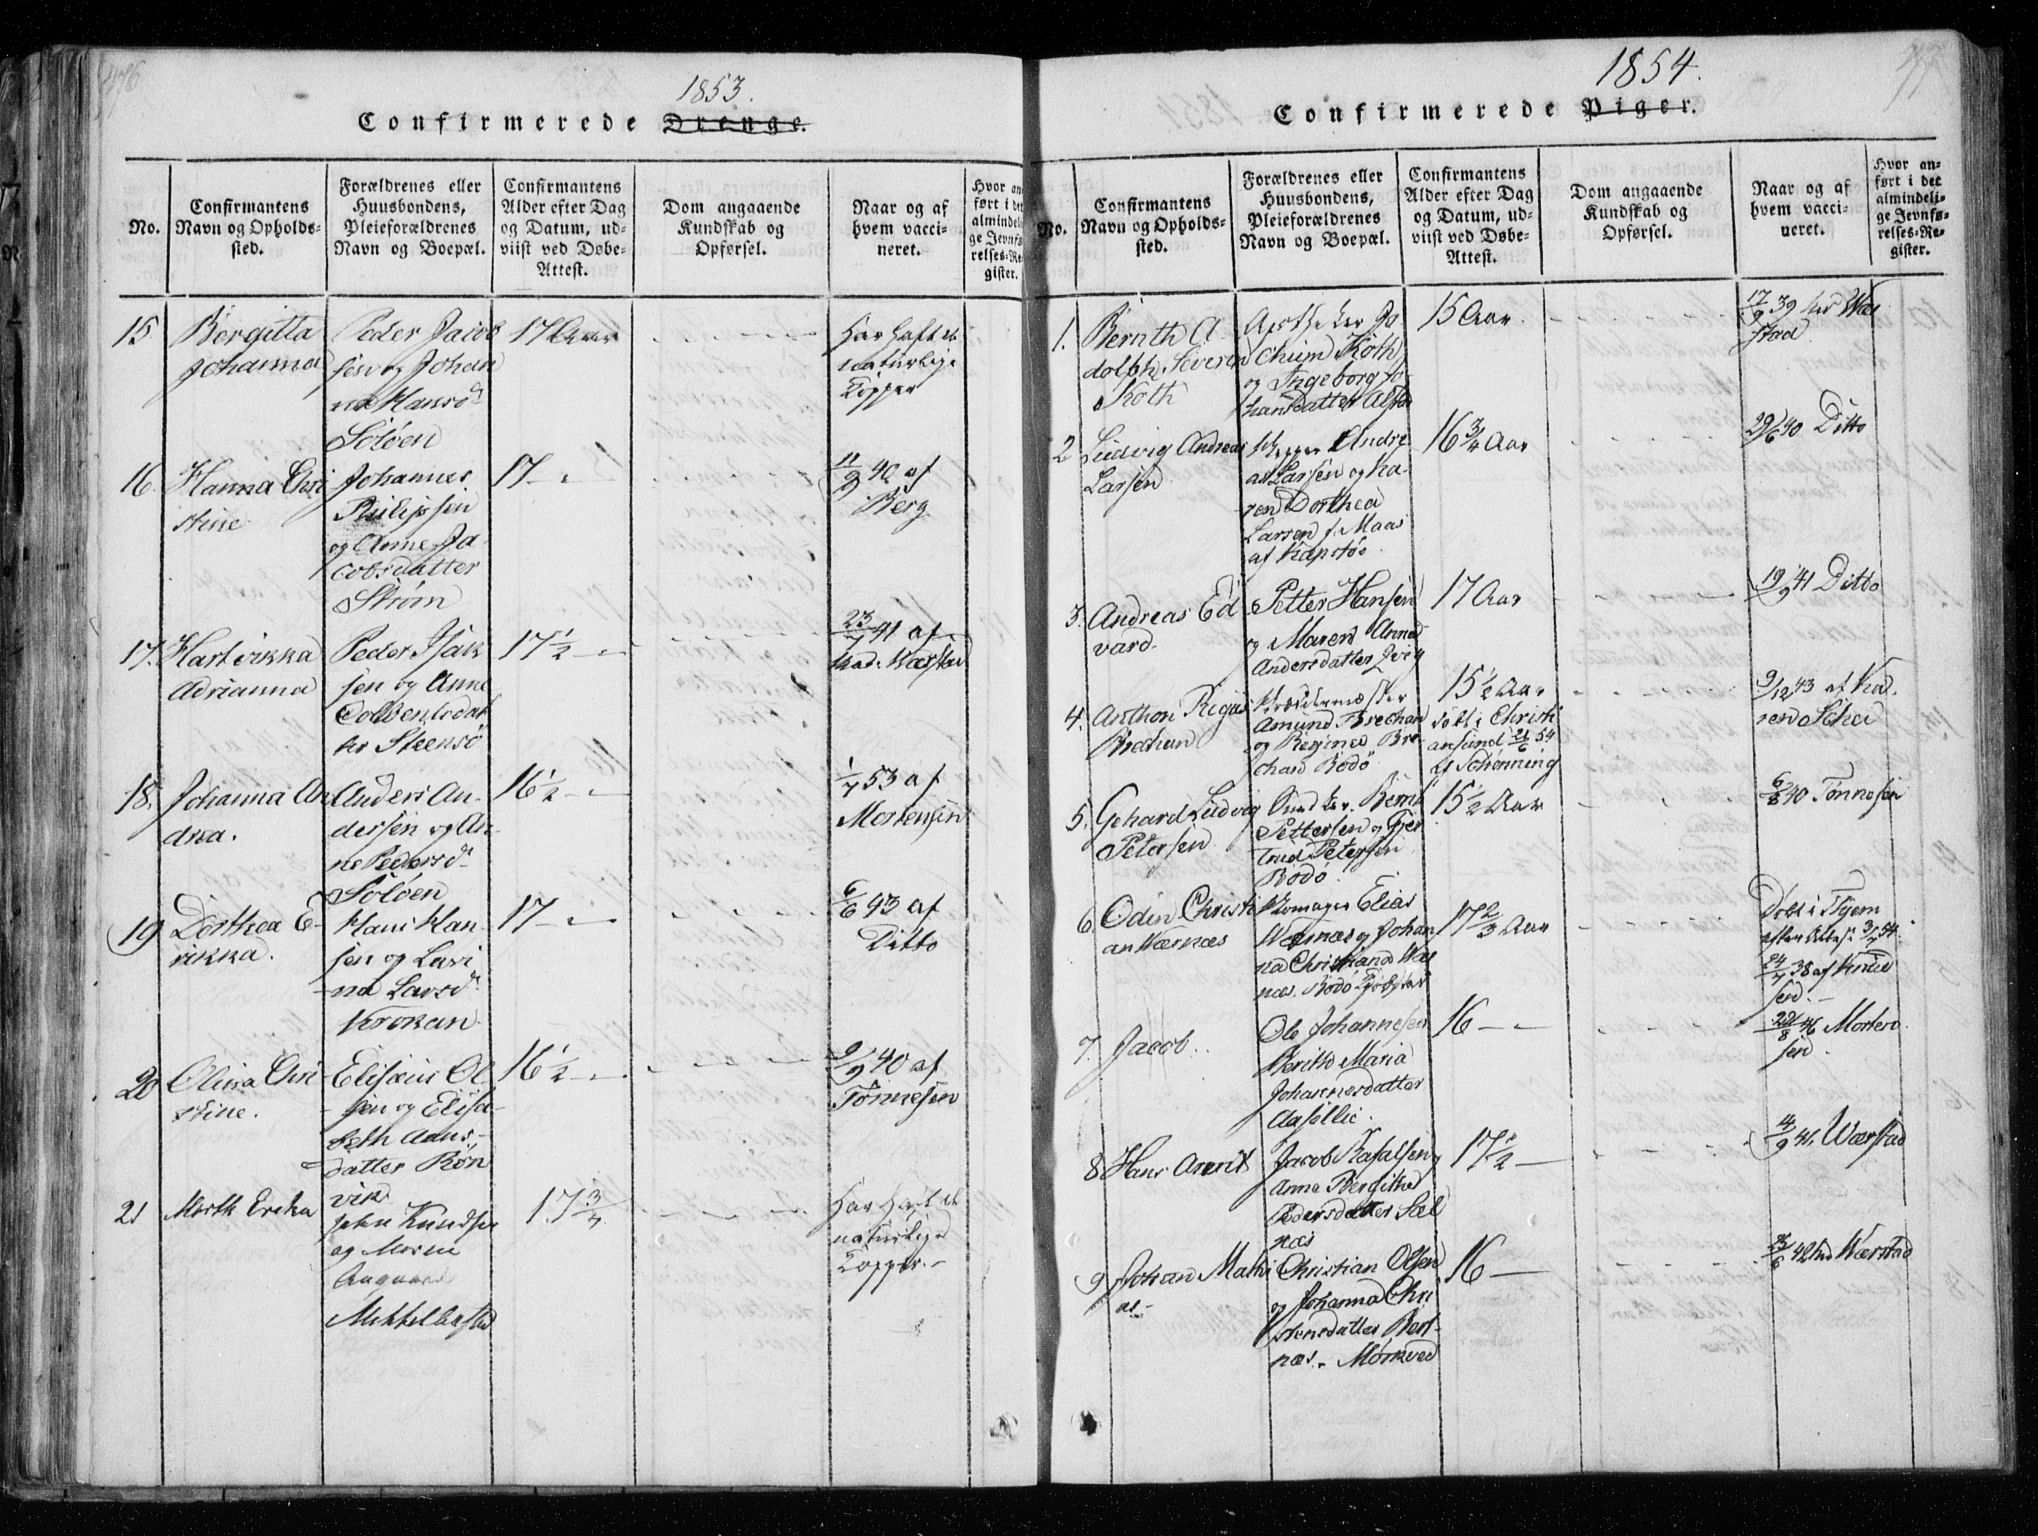 476
1853.
Confirmerede Drenge.
No.
Confirmantens
Navn og Opholds-
sted.
Forældrenes eller
Huusbondens,
Pleieforældrenes
Navn og Boepæl.
Confirmantens
Alder efter Dag
og Datum, ud-
viist ved Døbe-
Attest.
Dom angaaende
Kundskab og
Opførsel.
Naar og af
hvem vacci-
neret.
Hvor an
ført i de
almindeli
ge Jevnfø
relses-Re
gister.
15
Bergitta
Johanna
Peder Jacob
sen og Johan
na Hansd
Soløen
17 Aar
Har haft de
naturlige
Kopper
16.
Hanna Chri
stine
Johannes
Philipsen
og Anne Ja
cobsdatter
Strøm
17 - "
11/9 40 af
Berg
17.
Hartvikka
Adrianna
Peder Isak
sen og Anne
datter
17 1/2 - "
23/7 41 af
18.
Johanna An
drea.
Anders An-
dersen og An-
ne Pedersd
Soløen
16 1/2 - "
1/7 53 af
Mortensen
19
Dorthea E-
rikka.
Hans Han-
sen og Lavi
na Larsd
Krokan
17 - "
6/6 43 af
Ditto
20
Olina Chri
stine.
Elisæus Ol
sen og Elisa-
beth
datter Røn
vik
16 1/2 - "
9/9 40 af
Tønnesen
21
Merth Ereka
John Knudsen
og Maren
Aagaard
17 3/4
Har haft de
naturlige
Kopper. -
1854.
Confirmerede Piger.
No.
Confirmantens
Navn og Opholds-
sted.
Forældrenes eller
Huusbondens,
Pleieforældrenes
Navn og Boepæl.
Confirmantens
Alder efter Dag
og Datum, ud-
viist ved Døbe-
Attest.
Dom angaaende
Kundskab og
Opførsel.
Naar og af
hvem vacci-
neret.
Hvor an-
ført i det
almindeli-
ge Jevnfø-
relses-Re-
gister.
1.
Bernth A
dolph Severin
Koth
Apotheker Jo
chum Koth
og Ingeborg Jo
hansdatter
15 Aar
17/9 39 ved Wæ
stad
2
Ludvig Andreas
Larsen
Skipper Andre
as Larsen og Ka-
ren Dorthea
Larsen f. Maas
16 3/4 Aar
29/6 40 Ditto
3.
Andreas Ed
vard.
Petter Hansen
og Maren Anna
Andersdatter
17 Aar
19/9 41 Ditto
4.
Anthon Rigas
Brechan
Amund Brechan
og Regina Bre-
chan Bodø
15 1/2 Aar
døbt i Christi
ansund 21/6 54
Schønning
9/12 43 af Ka
ren
5.
Gehard Ludvig
Petersen
Bernt
Pettersen og Gjer
trud Petersen
Bodø
15 1/2 Aar
6/8 40 Tønnesen
6.
Odin Christi
an Wærnæs
Elias
Wærnæs og Johan
na Christiana Wær
næs. Bodø
17 2/3 Aar
Døbt i
efter Attest 3/7 54.
24/7 38 af Knud
sen. -
7.
Jacob.
Ole Johannesen
Berith Maria
Johannesdatter
16 - "
22/8 46 Morten
sen.
8
Hans Arnt
Jacob Rafalsen
Anna Bergithe
Pedersdatter Sæl
næs
17 1/2 -
4/9 41. Wærstad
9
Johan Mathi
as -
Christian Olsen
og Johanna Chri
stensdatter Bert-
næs. - Mørkved
16 -
25/6 42 ved Wærstad